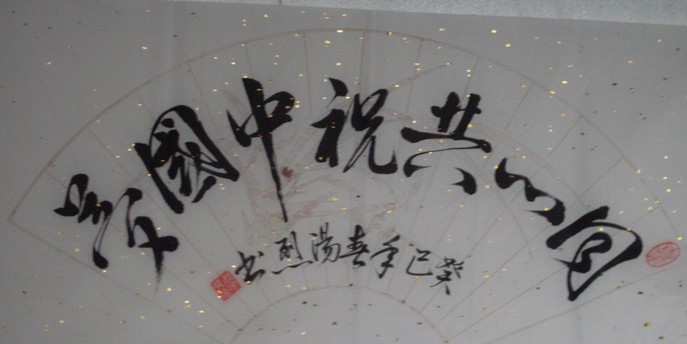 同心共祝中國夢
癸巳年春湯烈书